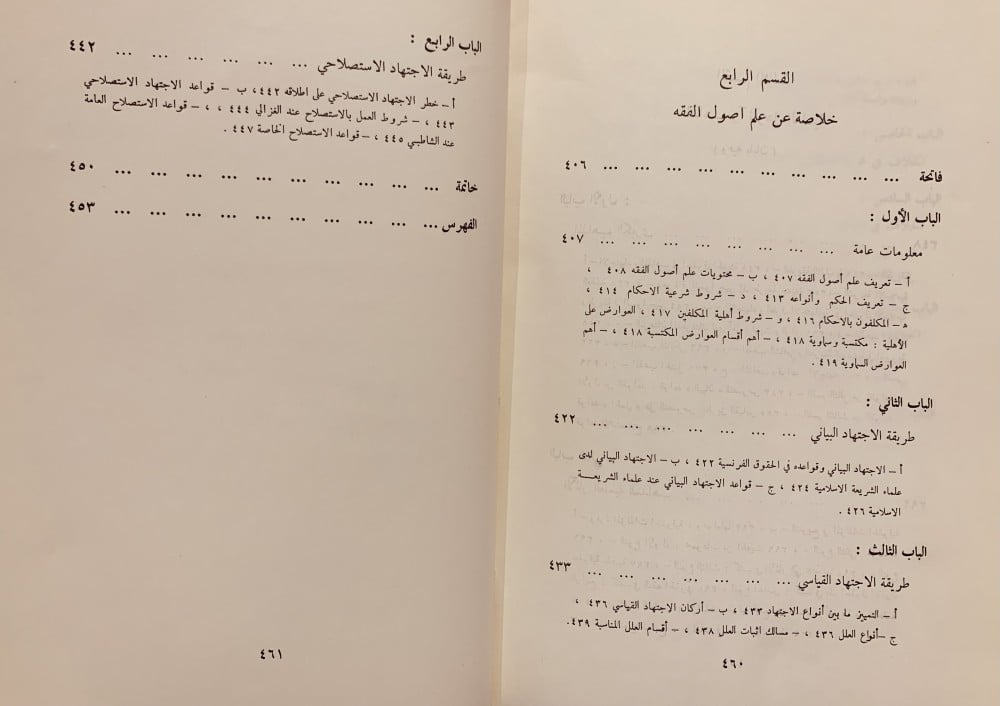 القسم الرابع
خلاصة عن علم اصول الفقه
فاتحة ... ... ... ... ... ... ... ... ... ... ٤٠٦
الباب الأول :
معلومات عامة ... ... ... ... ... ... ... ... ٤٠٧
أ – تعريف علم أصول الفقه ٤٠٧ ، ب – محتويات علم أصول الفقه ٤٠٨ ،
ج – تعريف الحكم وأنواعه ٤١٣ ، د – شروط شرعية الاحكام ٤١٤ ،
ه – المكلفون بالاحكام ٤١٦ ، و – شروط أهلية المكلفين ٤١٧ ، العوارض على
الأهلية : مكتسبة وسماوية ٤١٨ ، – أهم أقسام العوارض المكتسبة ٤١٨ ، – أهم
العوارض السماوية ٤١٩ .
الباب الثاني :
طريقة الاجتهاد البياني ... ... ... ... ... ... ... ٤٢٢
أ – الاجتهاد البياني وقواعده في الحقوق الفرنسية ٤٢٢ ، ب – الاجتهاد البياني لدى
علماء الشريعة الاسلامية ٤٢٤ ، ج – قواعد الاجتهاد البياني عند علماء الشريعـــة
الاسلامية ٤٢٦ .
الباب الثالث :
طريقة الاجتهاد القياسي ... ... ... ... ... ... ... ٤٣٣
أ – التمييز ما بين أنواع الاجتهاد ٤٣٣ ، ب – أركان الاجتهاد القياسي ٤٣٦ ،
ج –أنواع العلل ٤٣٦ ، – مسالك اثبات العلل ٤٣٨ ، – أقسام العلل المناسبة ٤٣٩.
٤٦٠
الباب الرابع :
طريقة الاجتهاد الاستصلاحي ... ... ... ... ... ... ٤٤٢
أ – خطر الاجتهاد الاستصلاحي على اطلاقه ٤٤٢، ب – قواعد الاجتهاد الاستصلاحي
٤٤٣ ، – شروط العمل بالاستصلاح عند الغزالي ٤٤٤ ، ، – قواعد الاستصلاح العامة
عند الشاطبي ٤٤٥ ، – قواعد الاستصلاح الخاصة ٤٤٧ .
خاتمة ... ... ... ... ... ... ... ... ... ... ٤٥٠
الفهرس ... ... ... ... ... ... ... ... ... ... ٤٥٣
٤٦١